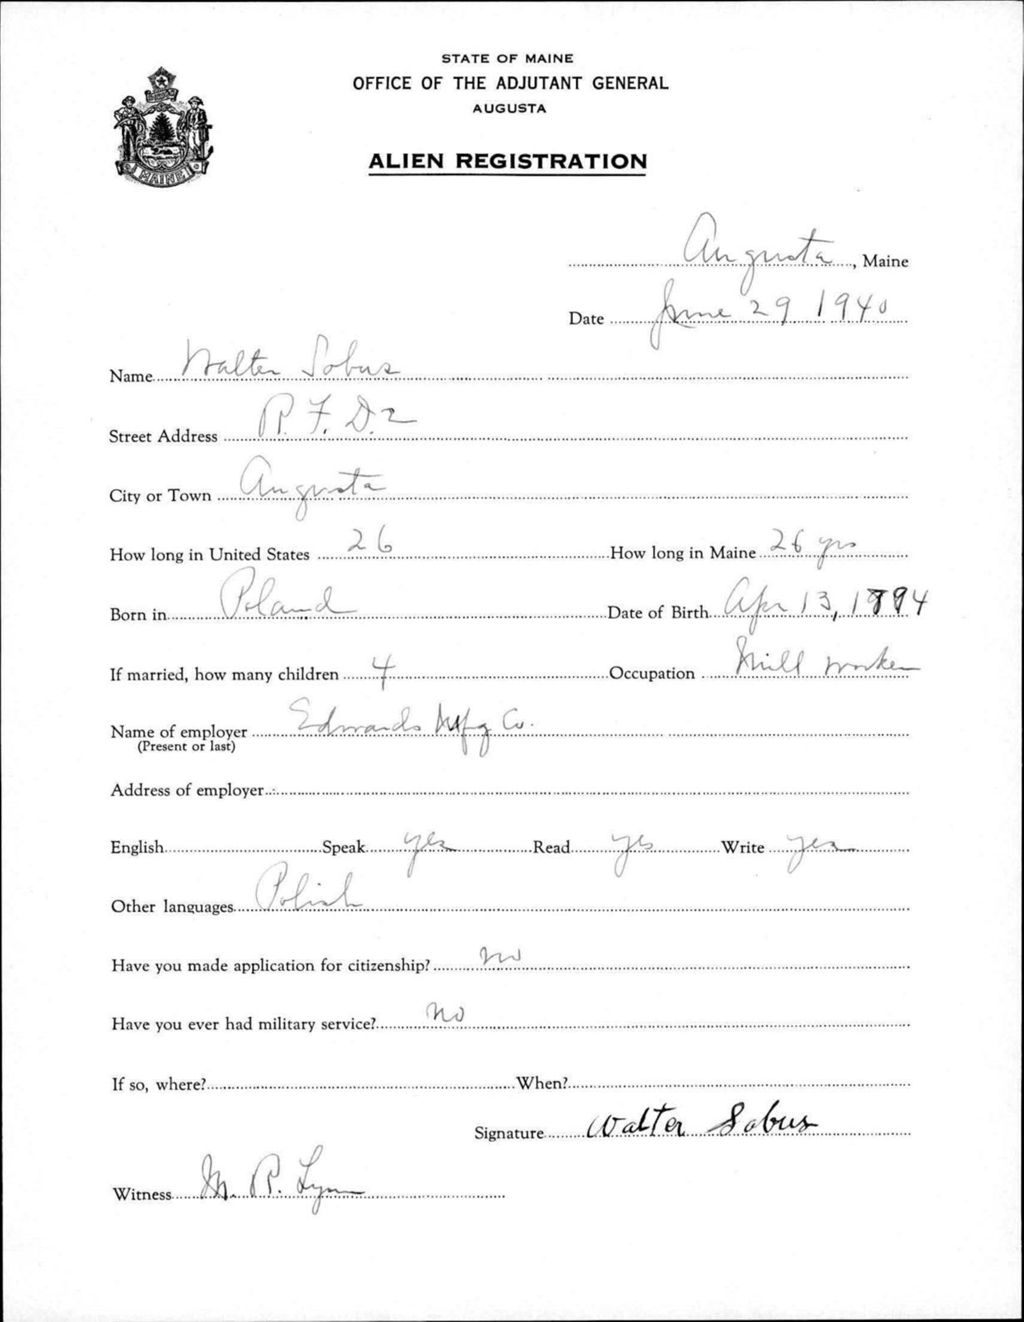 STATE OF MAINE
OFFICE OF THE ADJUTANT GENERAL
AUGUSTA
MAINE
ALIEN REGISTRATION
Augusta, Maine
Date June 29 1940
Name Walter Sobus
Street Address R. F. D. 2
City or Town Augusta
How long in United States 26 How long in Maine 26 yrs
Born in Poland Date of Birth Apr 13, 1894
If married, how many children 4 Occupation Mill worker
Name of employer Edwards Mfg Co.
(Present or last)
Address of employer
English Speak yes Read yes Write yes
Other languages Polish
Have you made application for citizenship? No
Have you ever had military service? No
If so, where? When?
Signature Walter Sobus
Witness M. P. Lynn